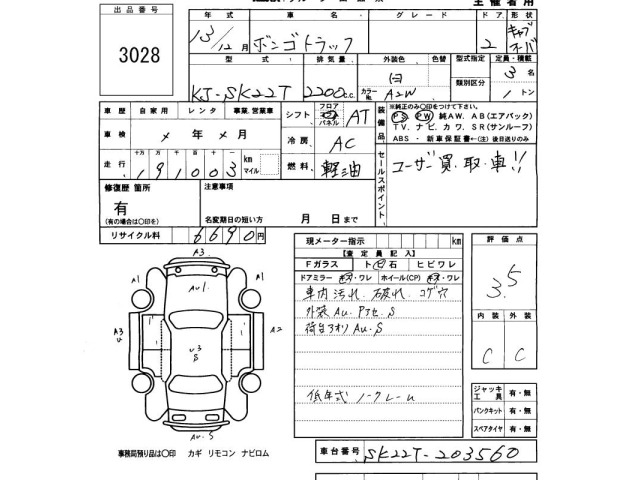 主催者用
出品番号
3028
年式 車名 グレード ドア 形状
13/12月 ボンゴトラック 2 キャブオーバ
型式 排気量 外装色 色替 型式指定 定員・積載
KJ-SK22T 2200c.c. 白 カラーNo. A2W 類別区分 3名 1トン
車歴 自家用 レンタ 事業・営業車
シフト フロア コラム パネル AT
車検 年 月
冷房 AC
走行 十万 万 千 百 十 km マイル
191003
燃料 軽油
装備品
※純正のみ○印をつけて下さい。
PS PW 純AW. AB(エアバック)
TV. ナビ. カワ. SR(サンルーフ)
ABS・新車保証書←(注)後日送りのみ
セールスポイント
ユーザー買取車!!
修復歴 箇所
有
(有の場合は○印を)
注意事項
名変期日の短い方 月 日まで
リサイクル料 6690円
現メーター指示 km
【査定員記入】
Fガラス ト 石 ヒビワレ
ドアミラー キズ・ワレ ホイール(CP) キズ・ワレ
車内汚れ. 破れ. コゲ穴
外装 AU. Pアセ. S
荷台アオリ AU. S
低年式 ノークレーム
評価点
3.5
内装 外装
C C
A3
A1
AU1.
A1
A3
U
U3
S
A2
AU.S
ジャッキ 工具 有・無
パンクキット 有・無
スペアタイヤ 有・無
事務局預り品は○印 カギ リモコン ナビロム
車台番号 SK22T-203560